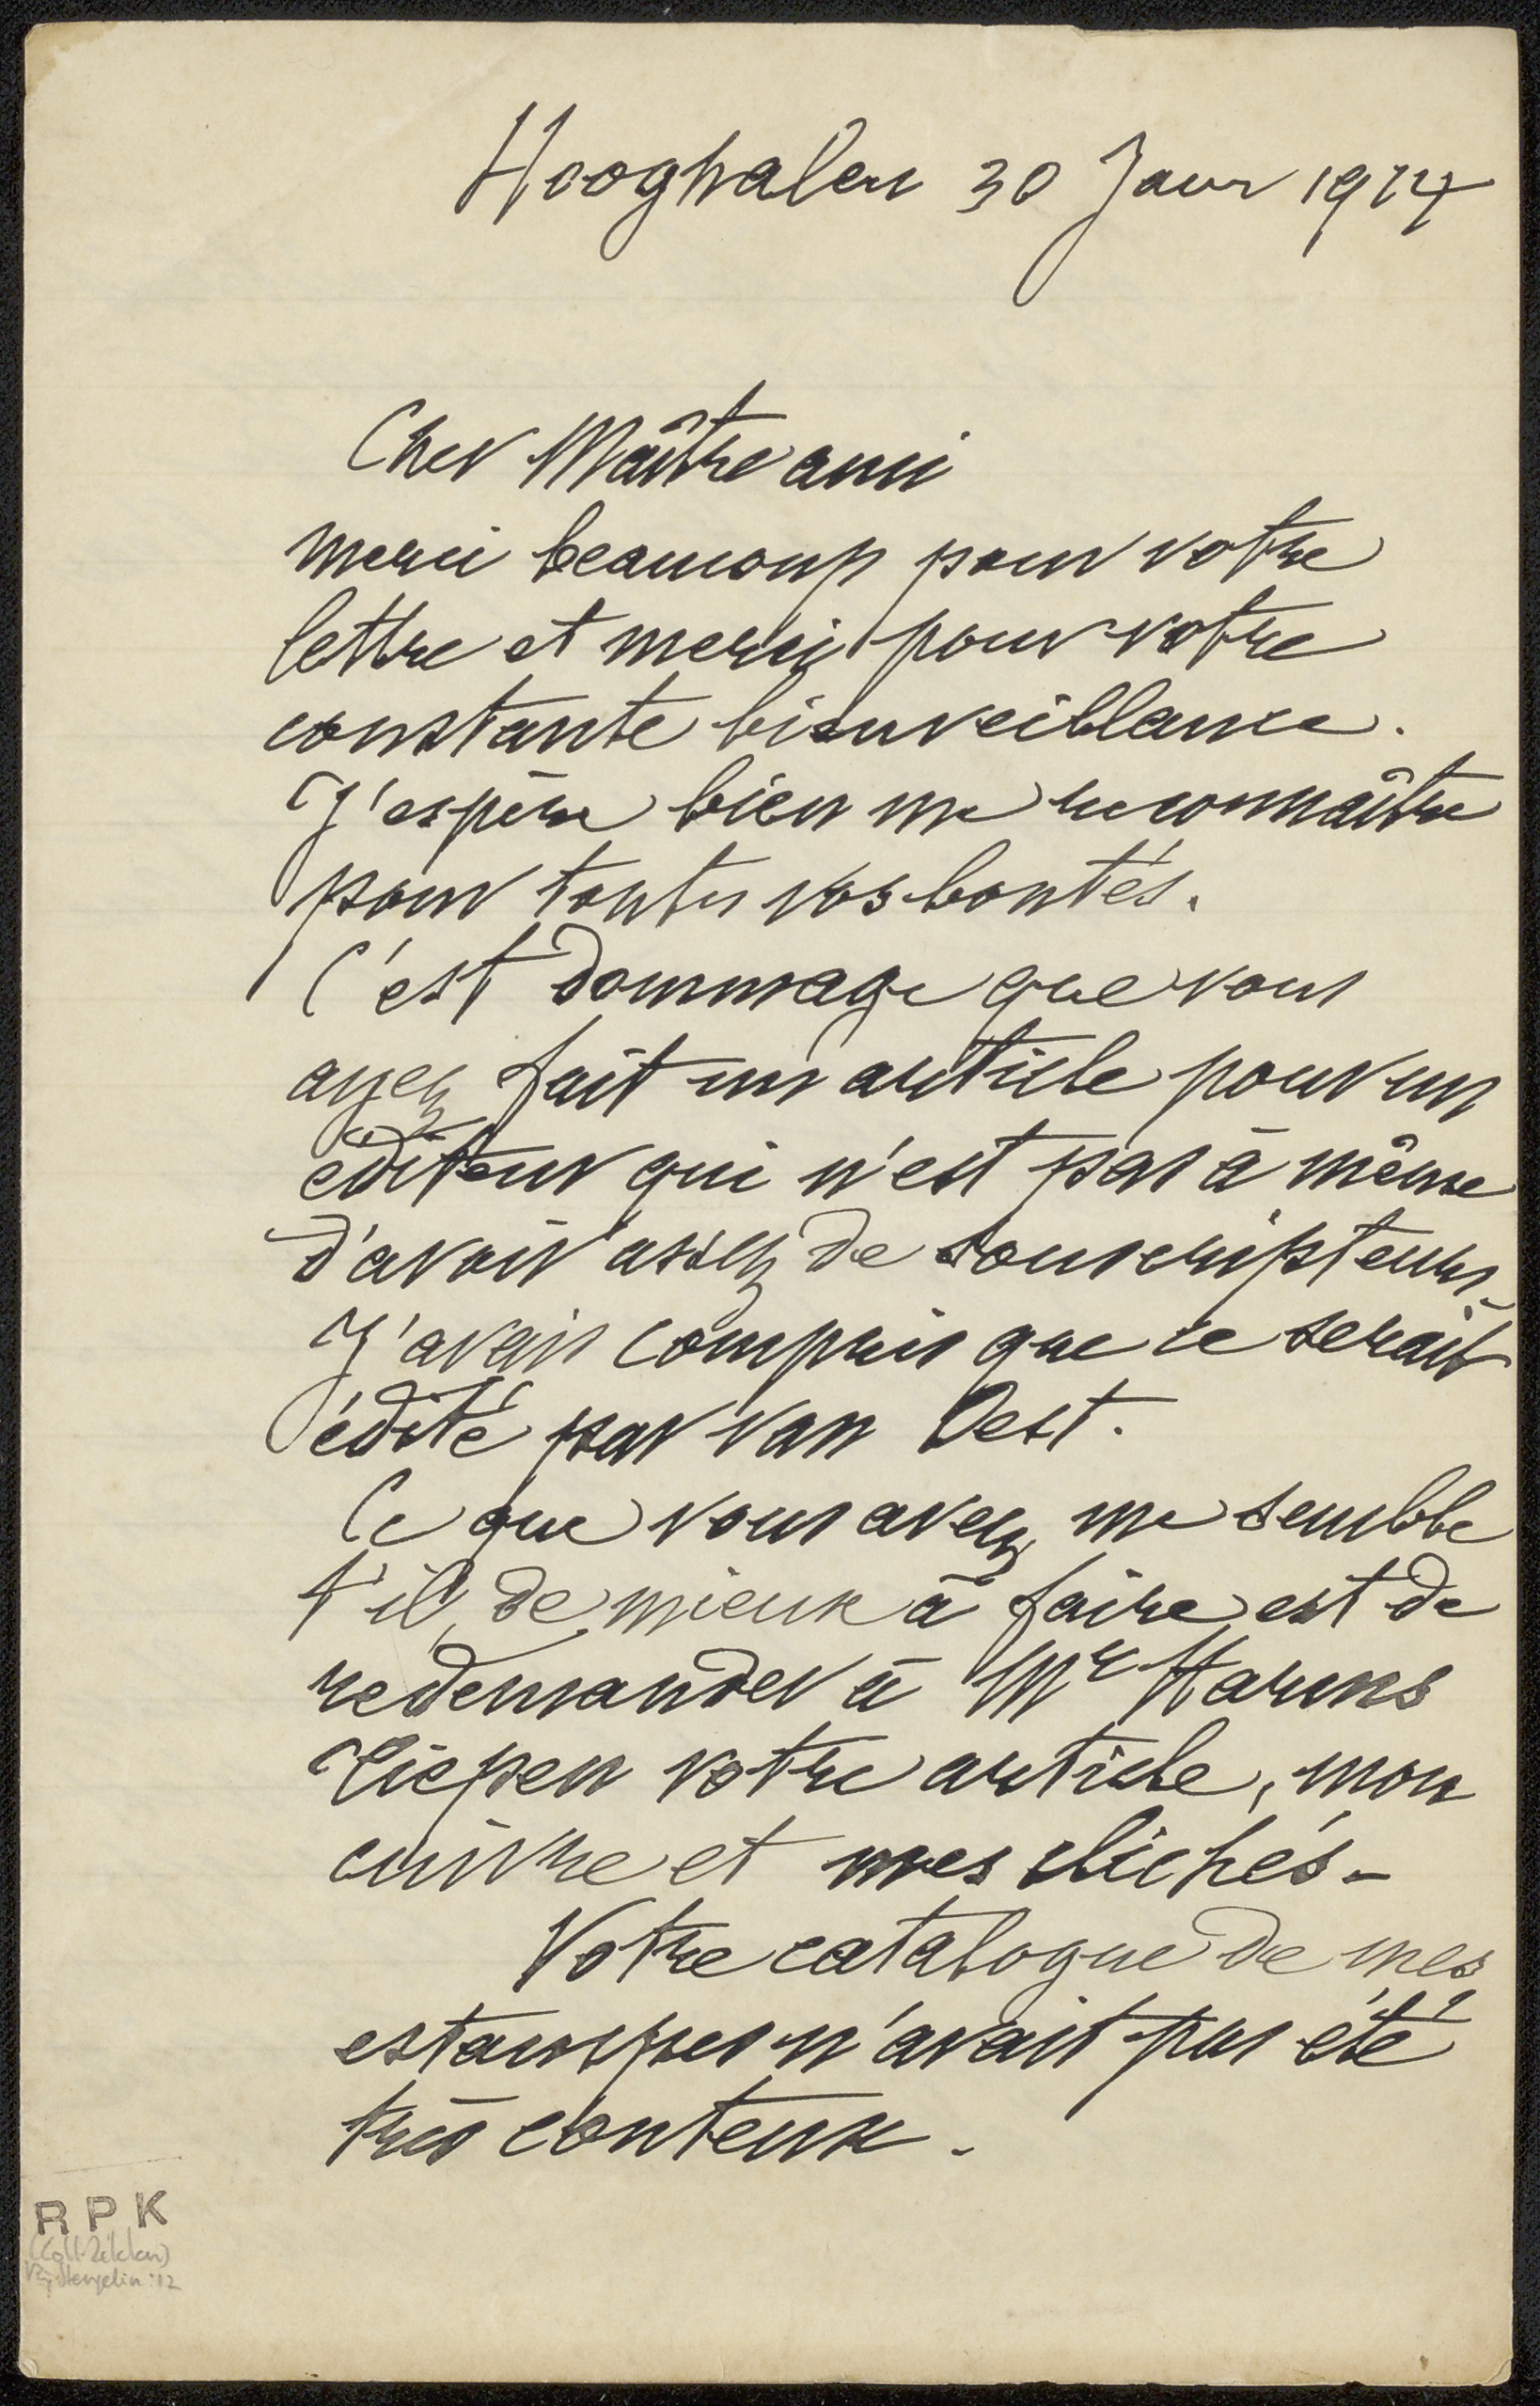 Hooghalen 30 Janr 1914
Cher Maître ami
merci beaucoup pour votre
lettre et merci pour votre
constante bienveillance.
J'espère bien me reconnaître
pour toutes vos bontés.
C'est dommage que vous
ayez fait un article pour un
éditeur qui n'est pas à même
d'avoir assez de souscripteurs.
J'avais compris que ce serait
édité par van Oest.
Ce que vous avez me semble
t'il, de mieux à faire est de
redemander à Mr Harms
Tiepen votre article, mon
cuivre et mes clichés-
Votre catalogue de mes
estampes n'avait pas été
très conteux.
RPK
(Coll. Zilcken)
Stengelin: 12